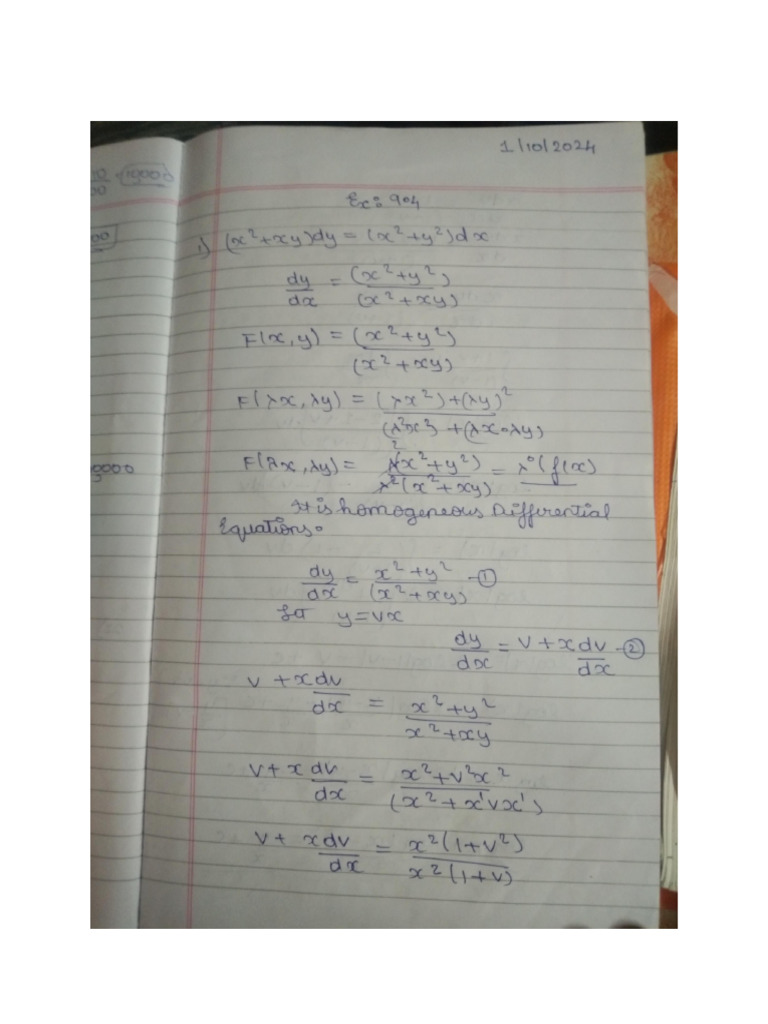 1/10/2024
10000
00
9000
Ex: 9.4
1) (x²+xy)dy = (x²+y²)dx
dy/dx = (x²+y²)/(x²+xy)
F(x,y) = (x²+y²)/(x²+xy)
F(λx,λy) = (λx²)+(λy)²/(λ²x²)+(λx·λy)
F(λx,λy) = λ²(x²+y²)/λ²(x²+xy) = λ°(f(x)
It is homogeneous Differential
Equations.
dy/dx = x²+y²/(x²+xy) -①
Let y=vx
dy/dx = v+x dv/dx -②
v + x dv/dx = x²+y²/x²+xy
v + x dv/dx = x²+v²x²/(x²+x¹vx¹)
v + x dv/dx = x²(1+v²)/x²(1+v)